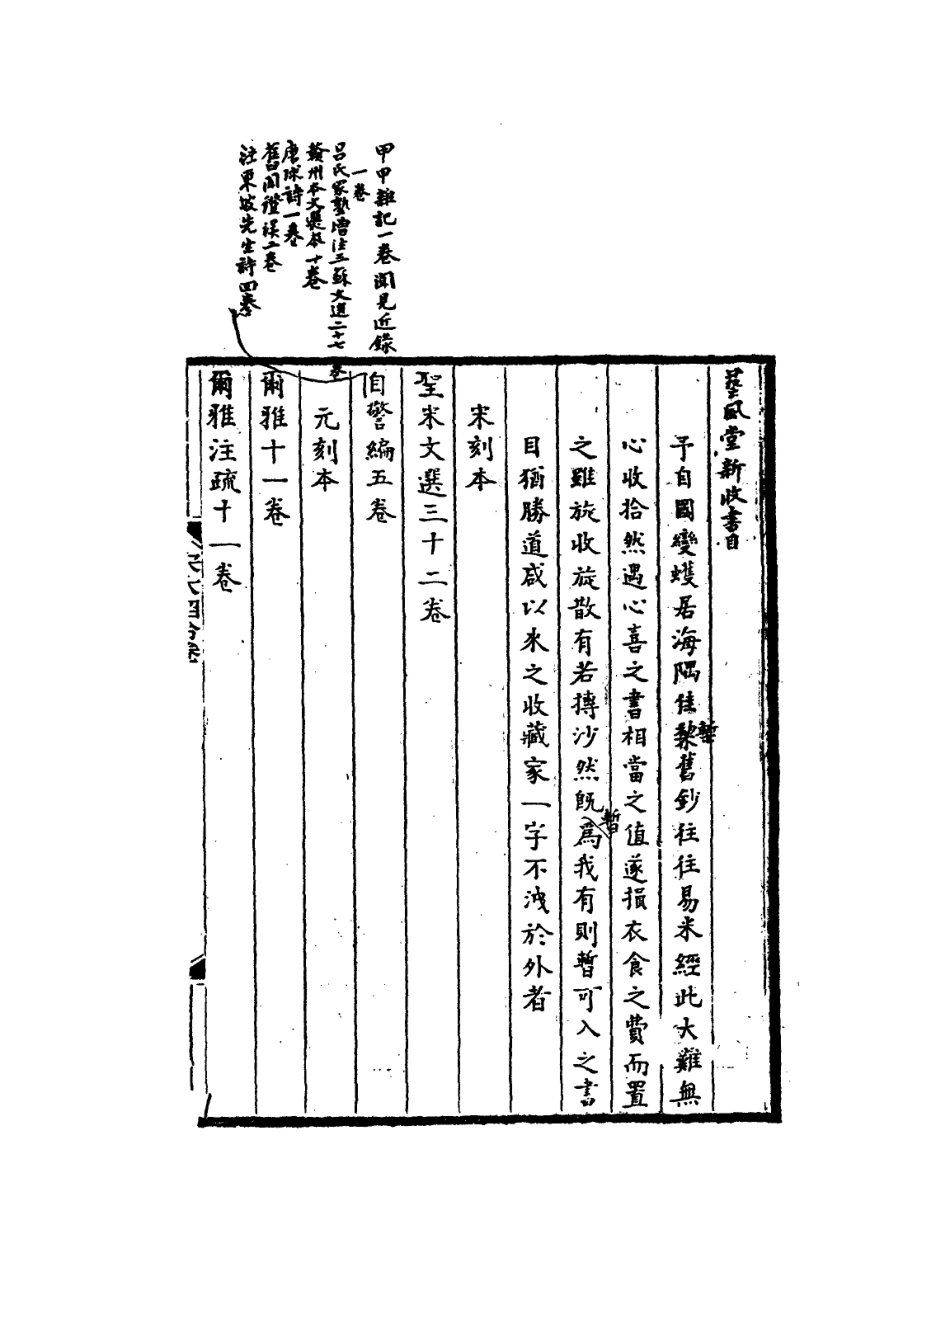 藝風堂新收書目
予自國變蠖居海隅佳槧舊鈔往往易米經此大難無
槧
心收拾然遇心喜之書相當之值遂損衣食之費而置
之雖旋收旋散有若摶沙然既爲我有則暫可入之書
暫
目猶勝道咸以來之收藏家一字不洩於外者
宋刻本
聖宋文選三十二卷
自警編五卷
元刻本
爾雅十一卷
爾雅注疏十一卷
甲申雜記一卷聞見近錄
一卷
呂氏家塾增注三蘇文選二十七卷
贛州本文選 十卷
唐球詩一卷
舊聞證誤二卷
注東坡先生詩四卷